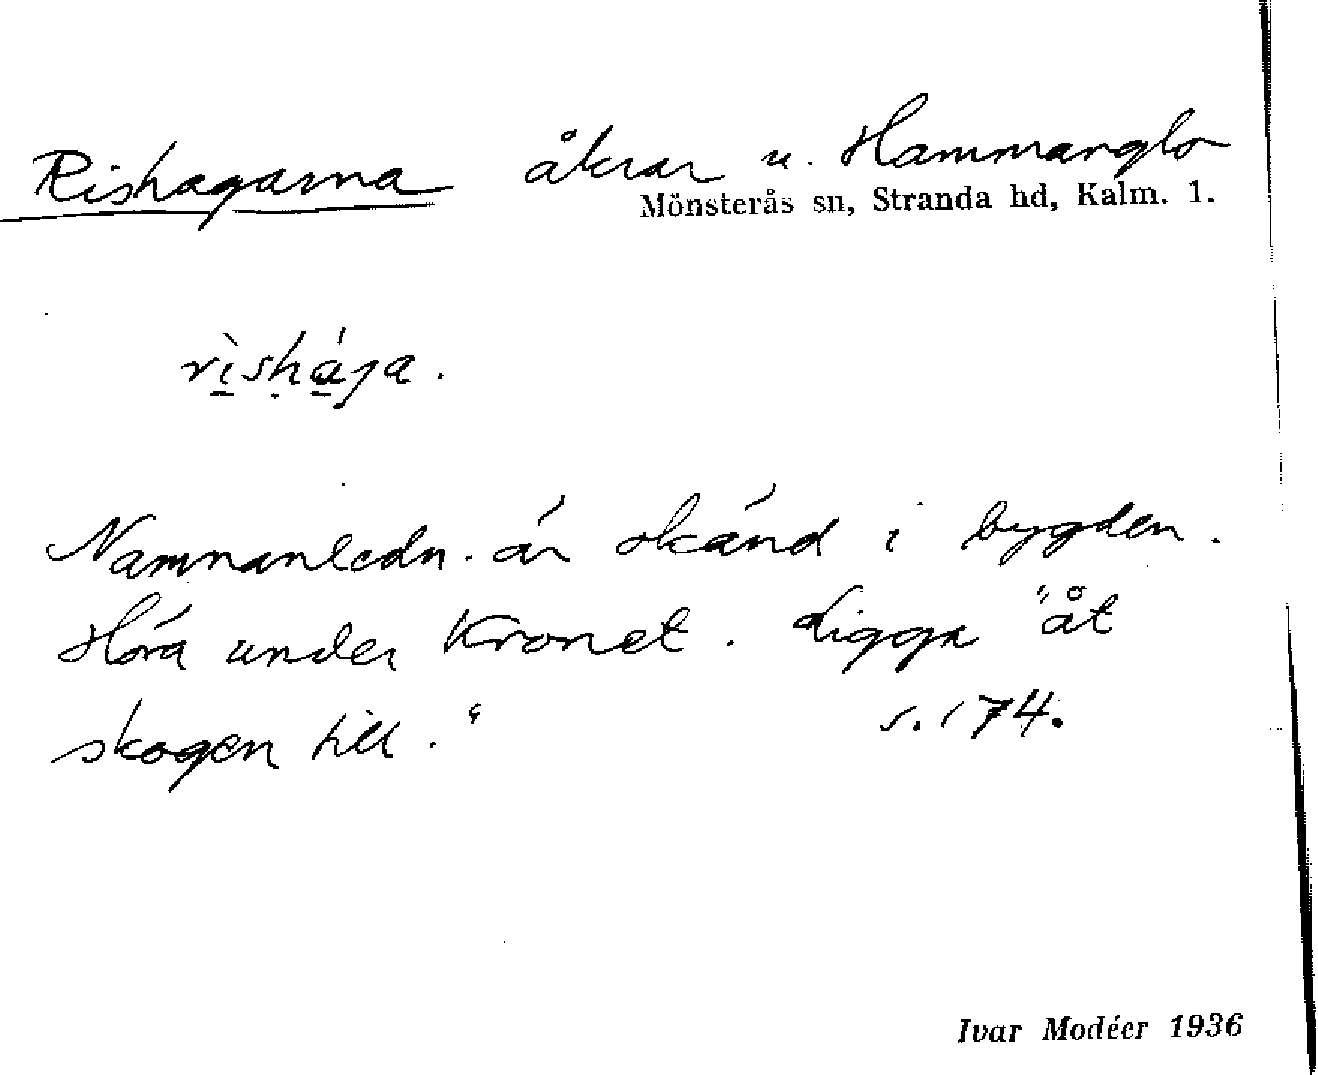 Rishagarna åkrar u. Hammarglo
Mönsterås sn, Stranda hd, Kalm. l.
rìshája.
Namnanledn. är okänd i bygden.
Höra under Kronet. Ligga "åt
skogen till."
s. 174.
Ivar Modéer 1936